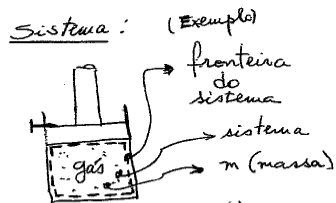 Sistema: (Exemplo)
fronteira
do
sistema
sistema
gás
m (massa)